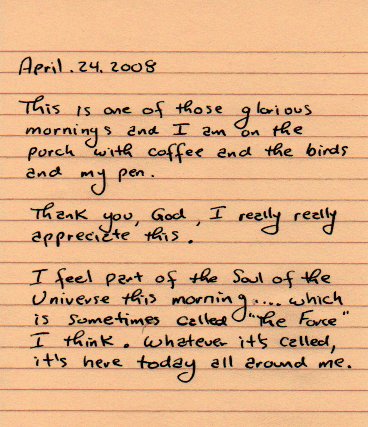 April.24.2008
This is one of those glorious
mornings and I am on the
porch with coffee and the birds
and my pen.
Thank you, God, I really really
appreciate this.
I feel part of the Soul of the
Universe this morning.... which
is sometimes called "The Force"
I think. Whatever it's called,
it's here today all around me.